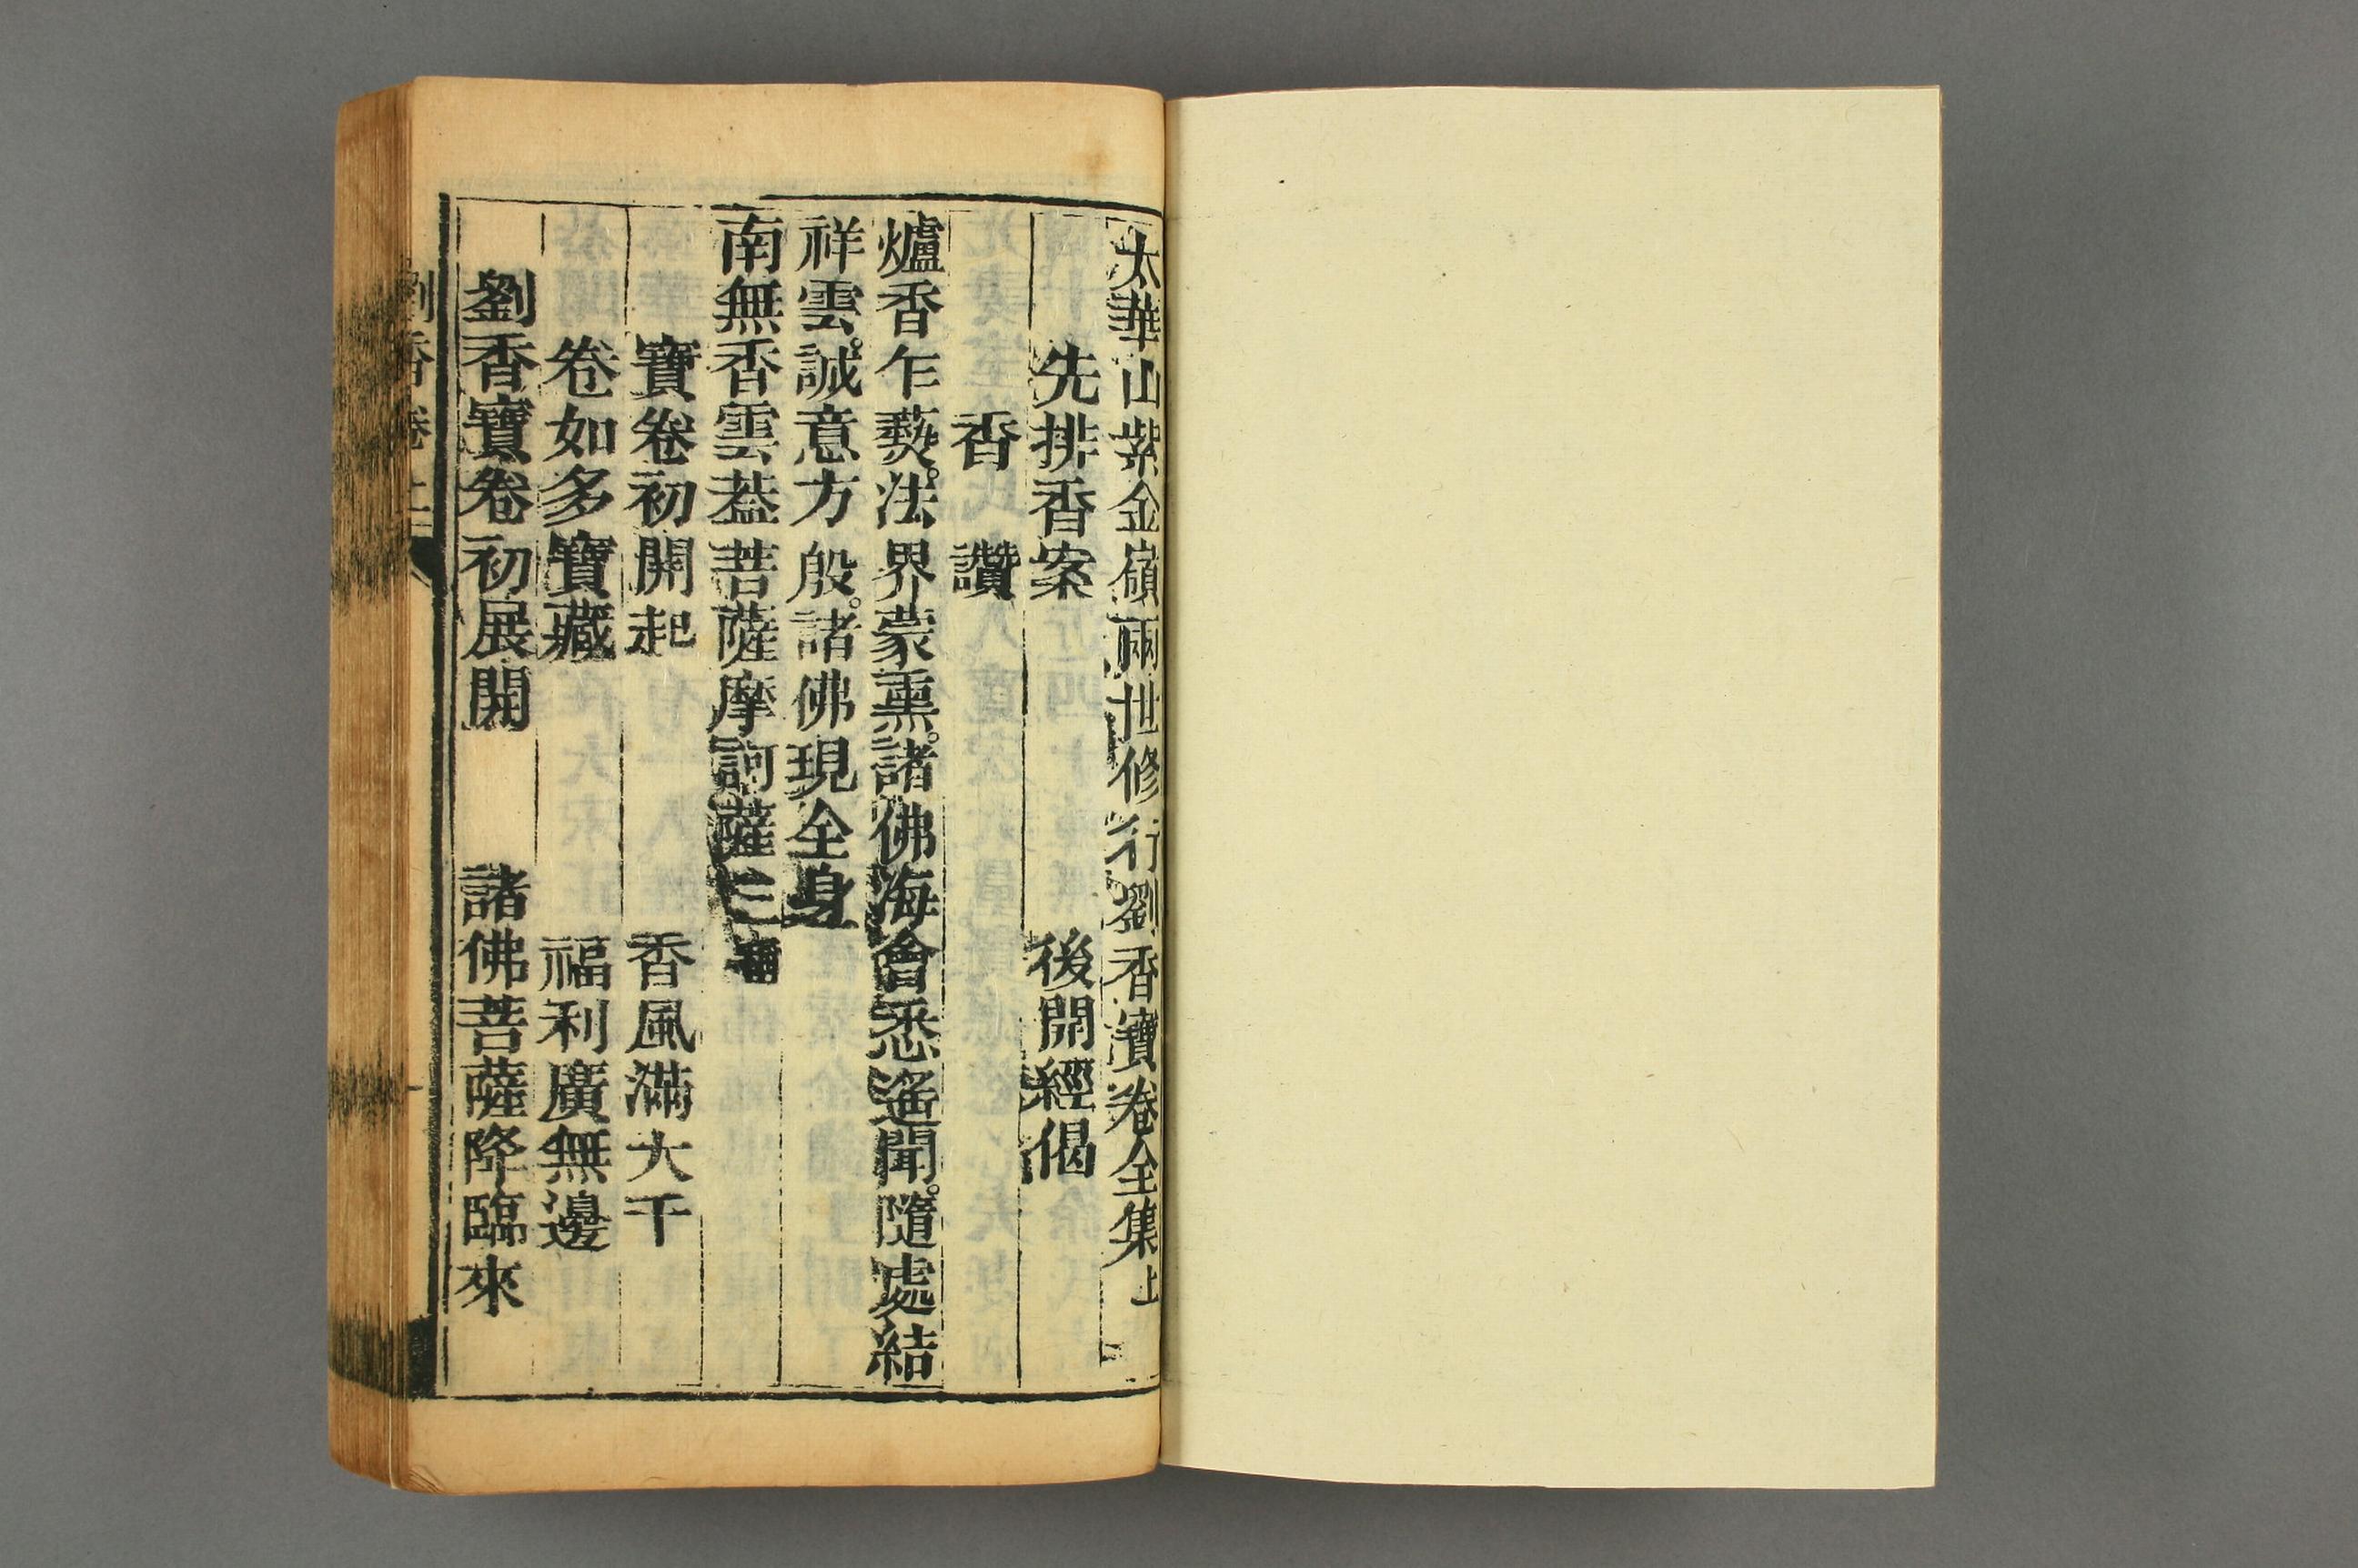 太華山紫金嶺兩世修行劉香寶卷全集上
先排香案　後開經偈
香讚
爐香乍爇。法界蒙熏。諸佛海會悉遙聞。隨處結
祥雲。誠意方殷。諸佛現全身
南無香雲蓋菩薩摩訶薩三稱
寶卷初開起　香風滿大千
卷如多寶藏　福利廣無邊
劉香寶卷初展開　諸佛菩薩降臨來
劉香卷上　一